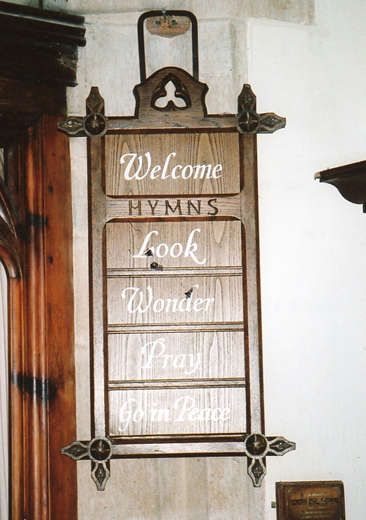 Welcome
HYMNS
Look
Wonder
Pray
Go in Peace